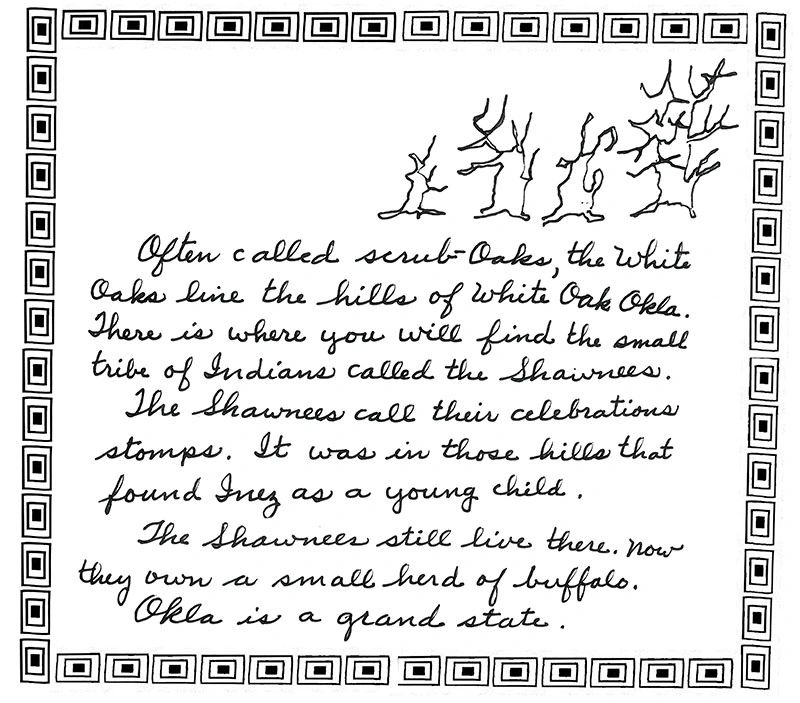 Often called scrub-Oaks, the White
Oaks line the hills of White Oak Okla.
There is where you will find the small
tribe of Indians called the Shawnees.
The Shawnees call their celebrations
stomps. It was in those hills that
found Inez as a young child.
The Shawnees still live there. Now
they own a small herd of buffalo.
Okla is a grand state.